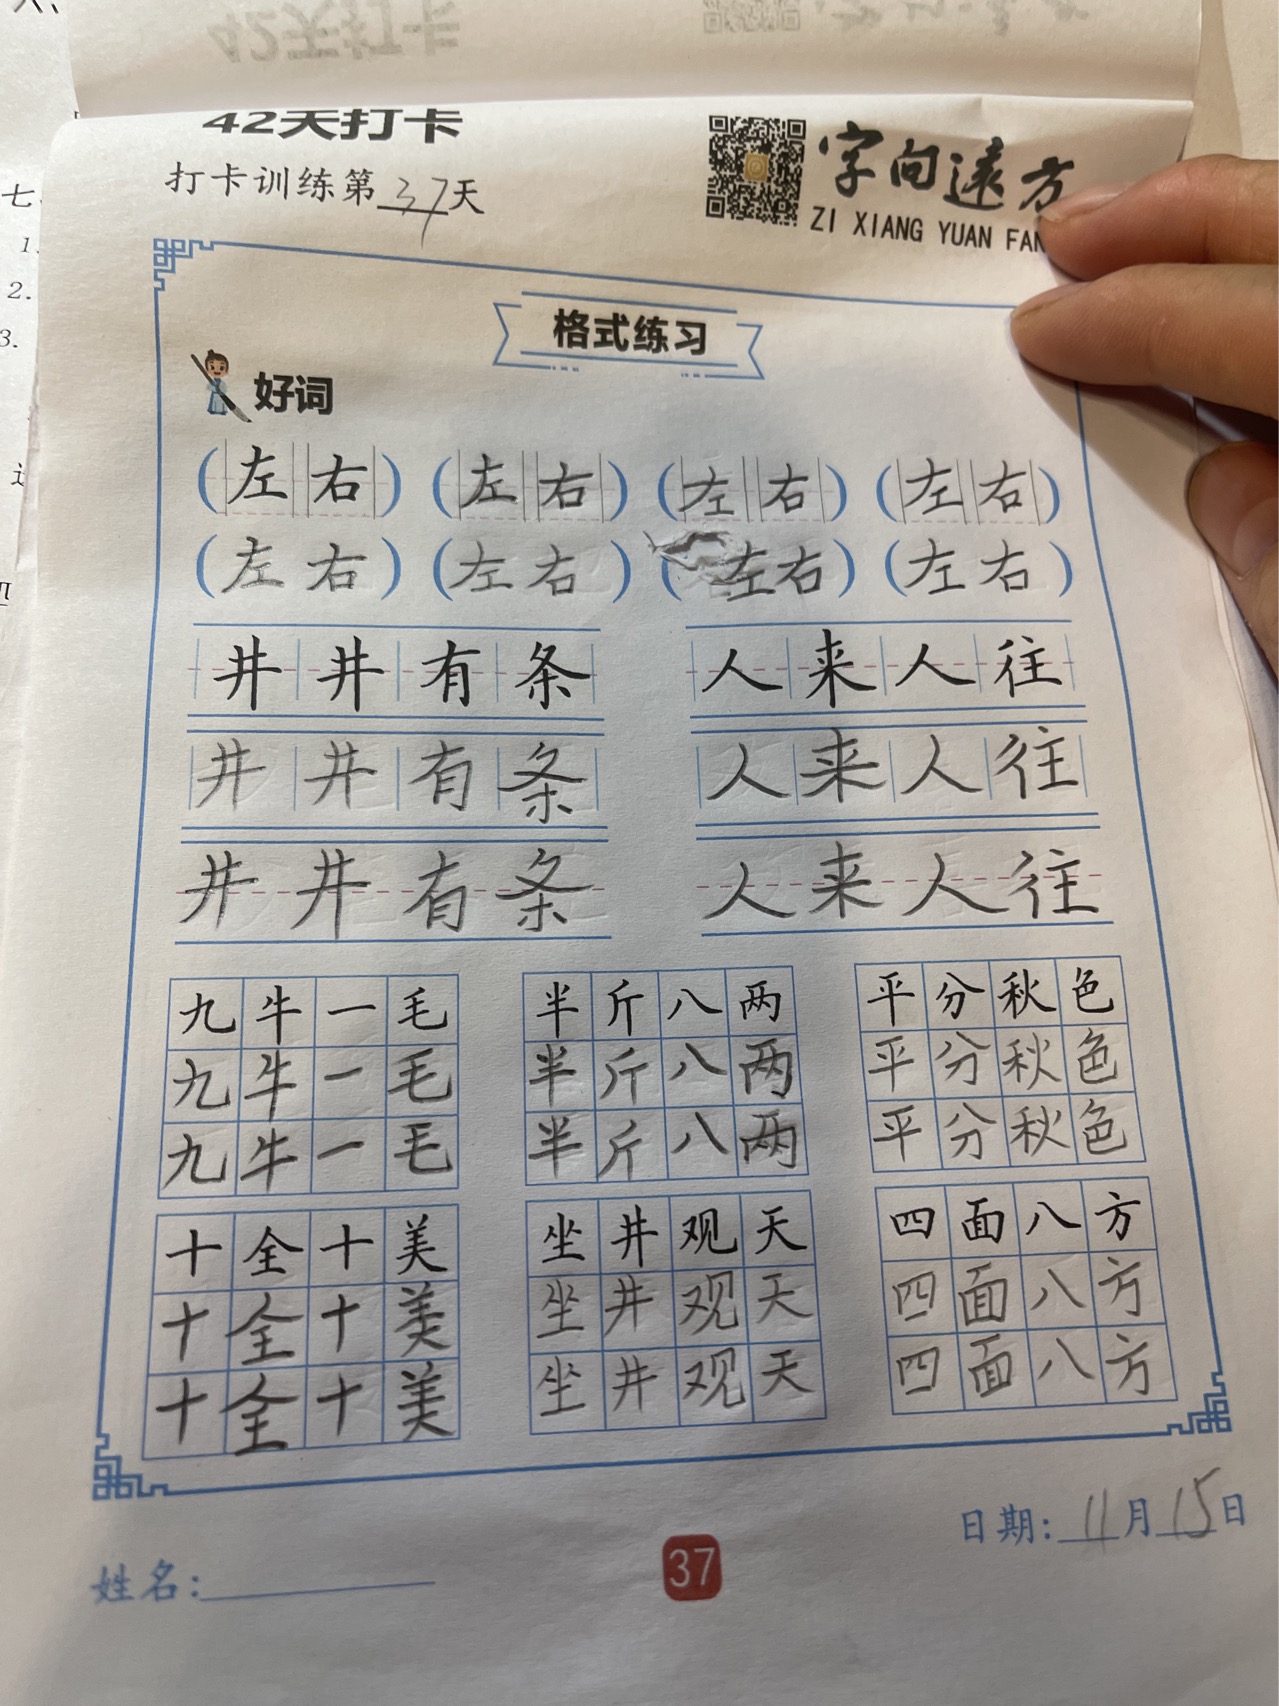 42天打卡
42天打卡
打卡训练第37天
字向远方
ZI XIANG YUAN FAN
七
1.
2.
3.
格式练习
好词
(左右) (左右) (左右) (左右)
(左右) (左右) (左右) (左右)
井井有条 人来人往
井井有条 人来人往
井井有条 人来人往
九牛一毛 半斤八两 平分秋色
九牛一毛 半斤八两 平分秋色
九牛一毛 半斤八两 平分秋色
十全十美 坐井观天 四面八方
十全十美 坐井观天 四面八方
十全十美 坐井观天 四面八方
日期:11月15日
姓名:
37